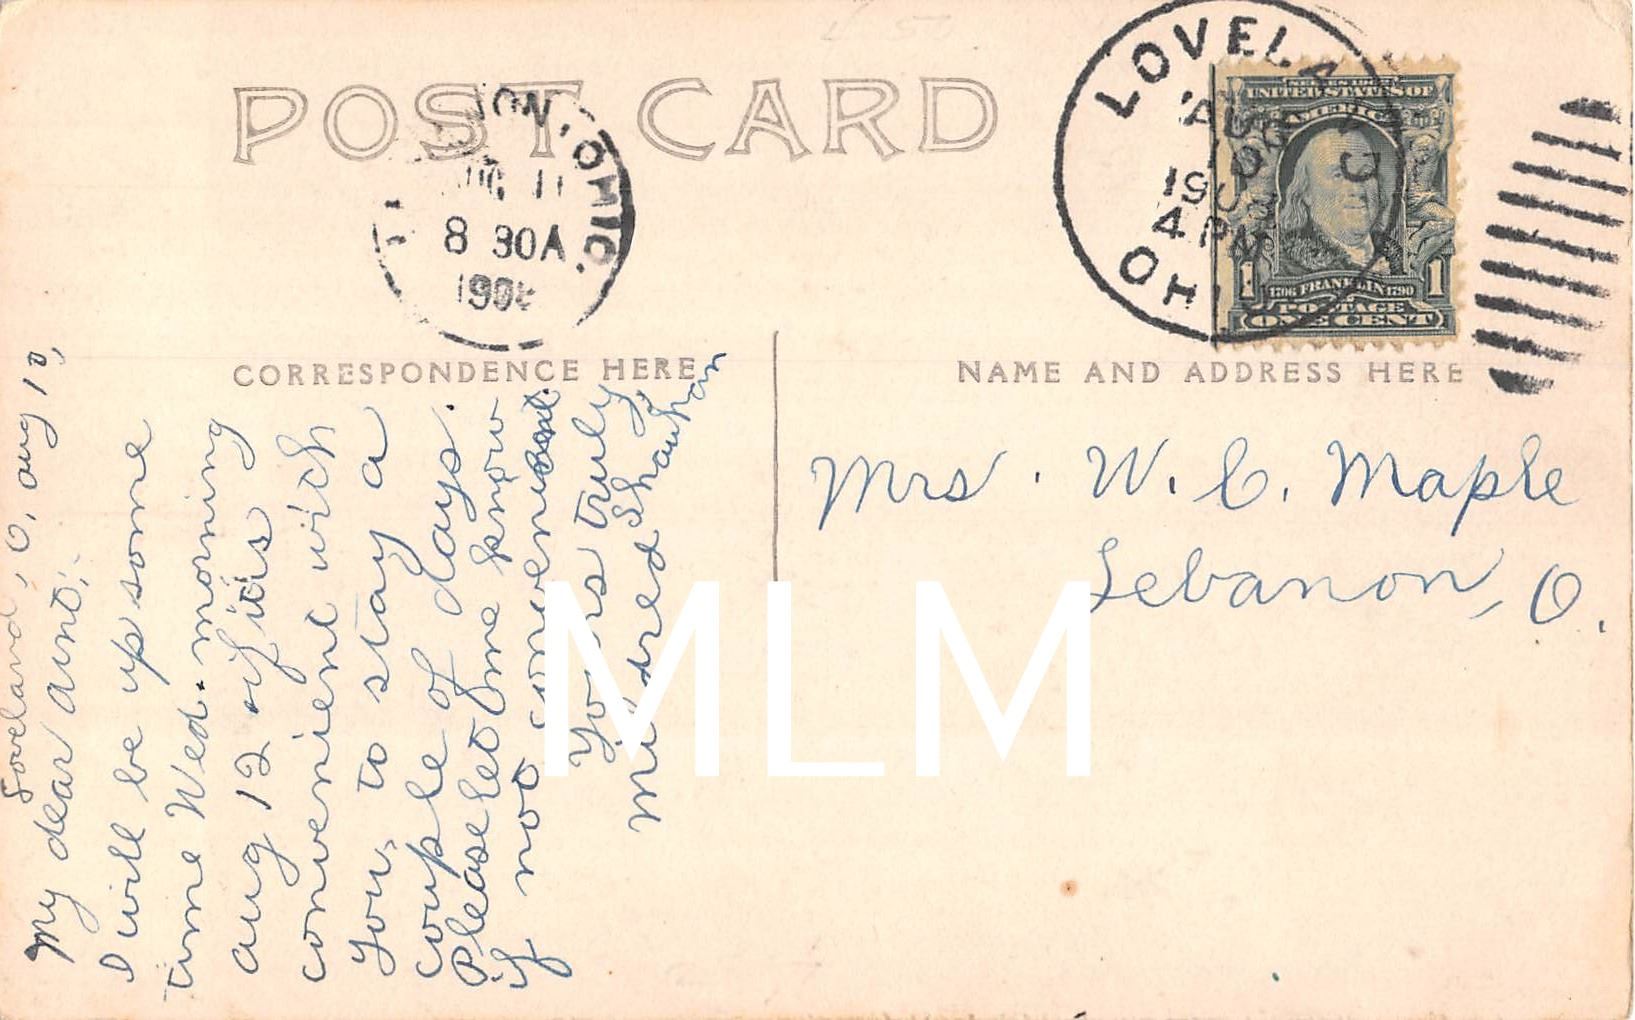 POST CARD
ON, OHIO.
AUG 11
8 30A
1908
LOVELA
OHIO
4 PM
UNITED STATES OF
AMERICA
1 1
1706 FRANKLIN 1790
POSTAGE
ONE CENT
CORRESPONDENCE HERE
NAME AND ADDRESS HERE
Loveland, O, aug 10,
My dear aunt;-
I will be up some
time Wed. morning
aug 12 if it is
convenient with
you, to stay a
couple of days.
Please let me know
if not convenient.
Yours truly,
Mildred Shawhan
Mrs. W. C. Maple
Lebanon, O.
MLM